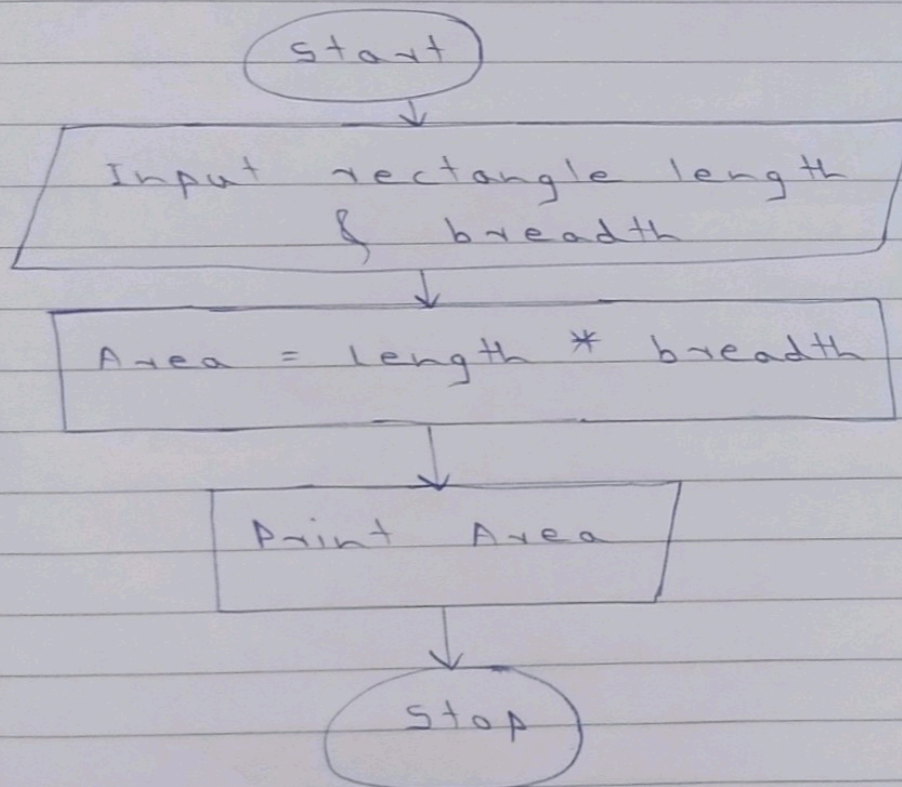 Start
Input rectangle length
& breadth
Area = length * breadth
Print Area
Stop